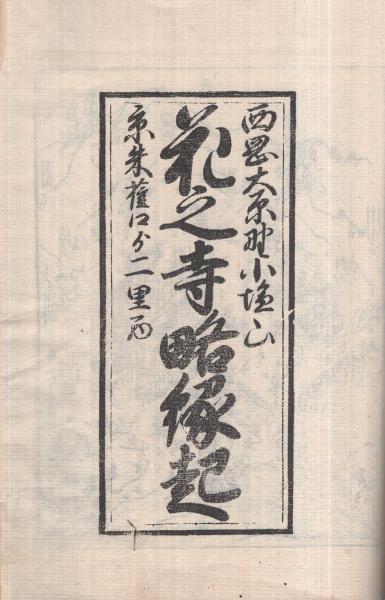 西岡大原野小塩山
花之寺略縁起
京朱雀口ゟ二里西